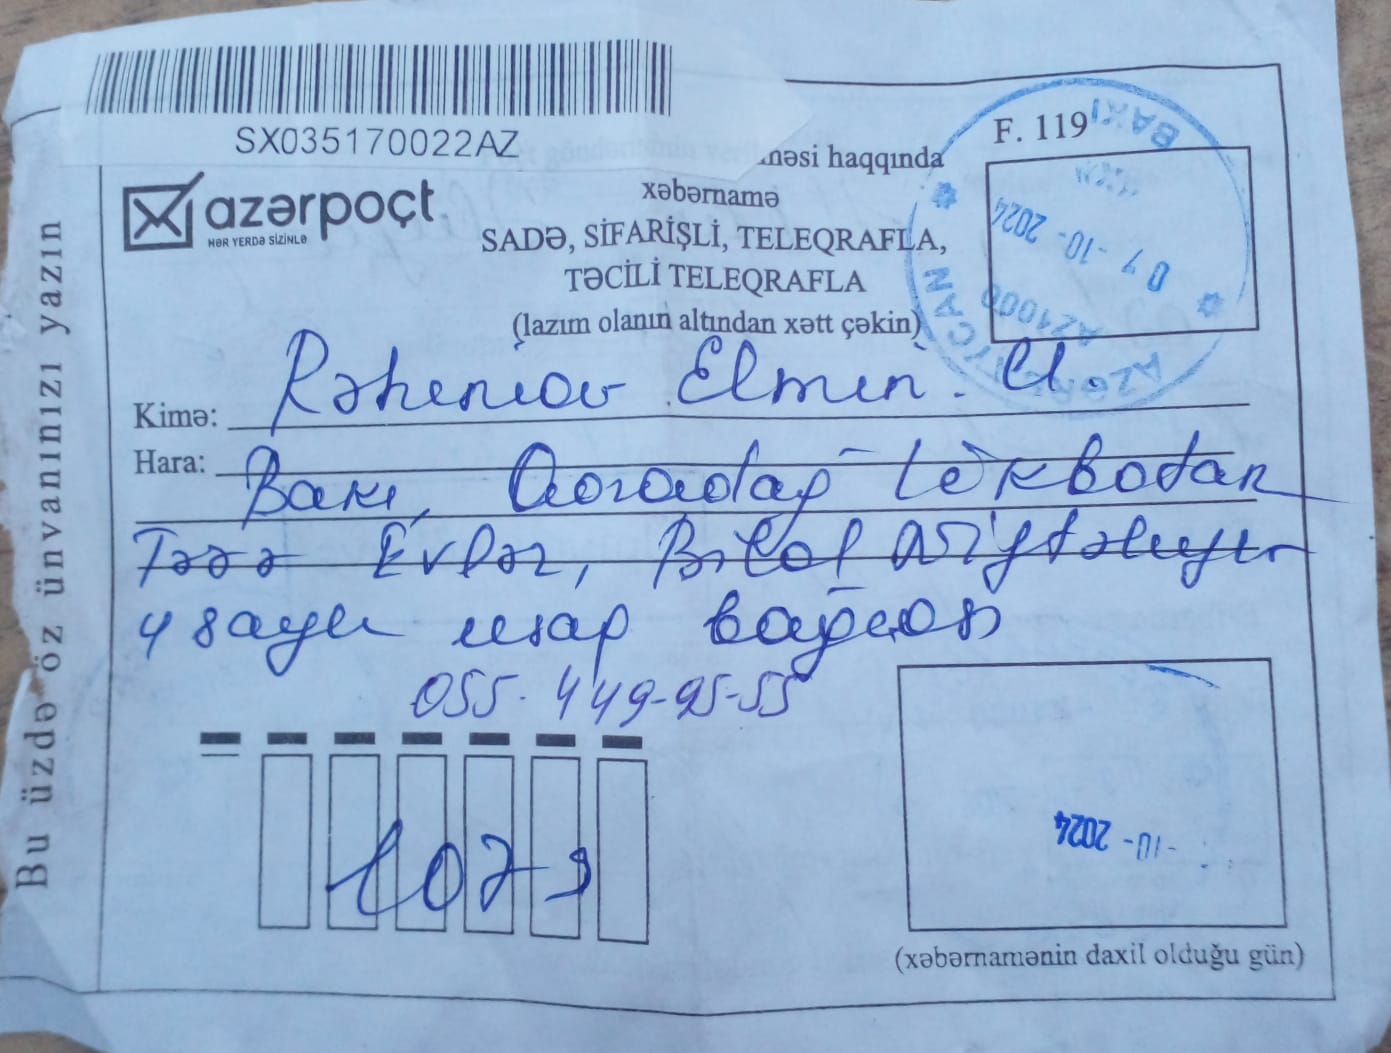 SX035170022AZ
F. 119
nəsi haqqında
xəbərnamə
azərpoçt
HƏR YERDƏ SİZİNLƏ
SADƏ, SİFARİŞLİ, TELEQRAFLA,
TƏCİLİ TELEQRAFLA
(lazım olanın altından xətt çəkin)
AZƏRBAYCAN
BAKI
AZ1000
07-10-2024
Kimə: Rəhimov Elmin.
Hara:
Bakı, Qaradağ Lökbatan
Təzə Evlər,
4 saylı uşaq bağçası
055-449-95-55
1079
-10-2024
(xəbərnamənin daxil olduğu gün)
Bu üzdə öz ünvanınızı yazın